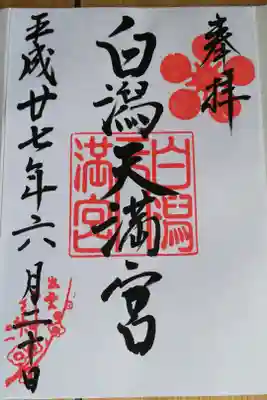 奉拝
白潟天満宮
白潟天満宮
平成廿七年六月二十日
出雲